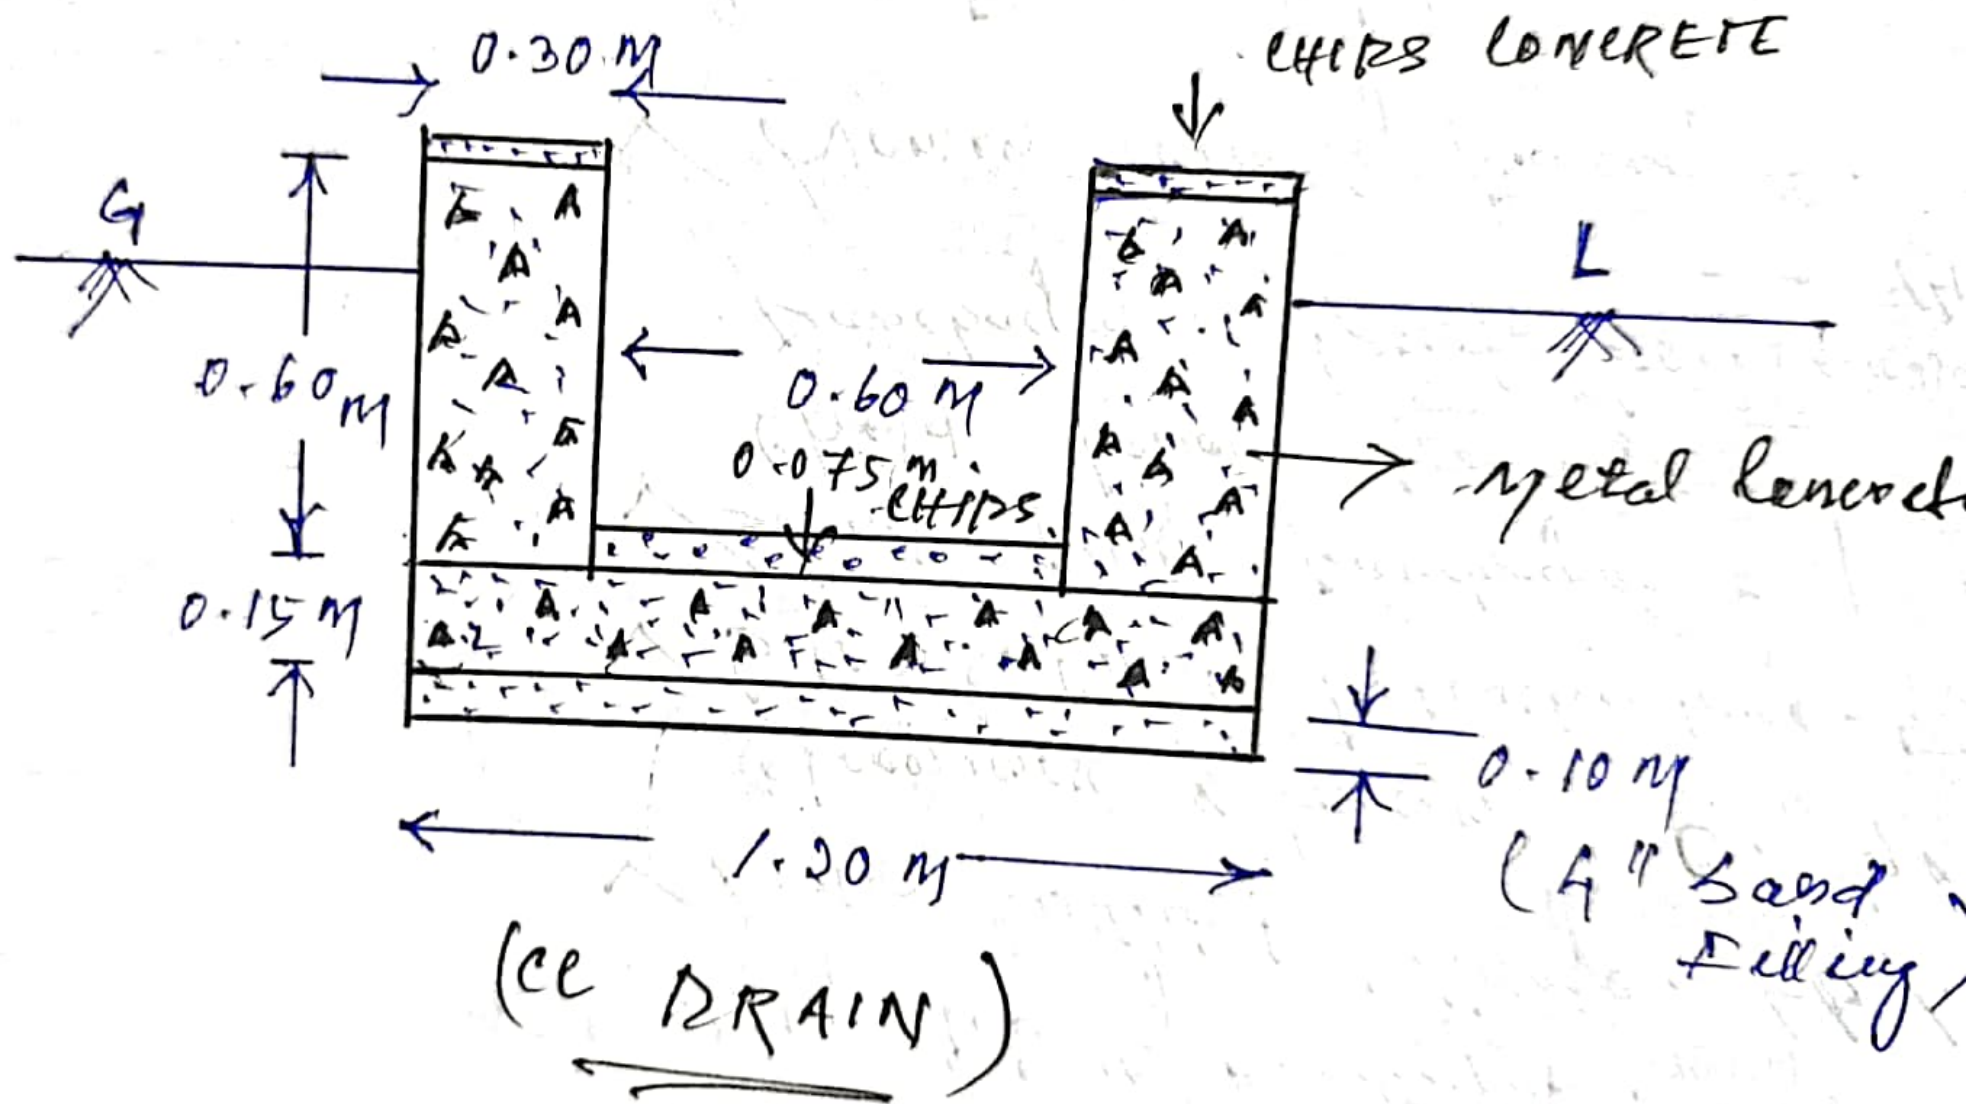 0.30 M
CHIPS CONCRETE
G
L
0.60 M
0.60 M
0.075 m
CHIPS
Metal Concrete
0.15 M
0.10 M
(4" Sand
Filling)
1.20 M
(CC DRAIN)